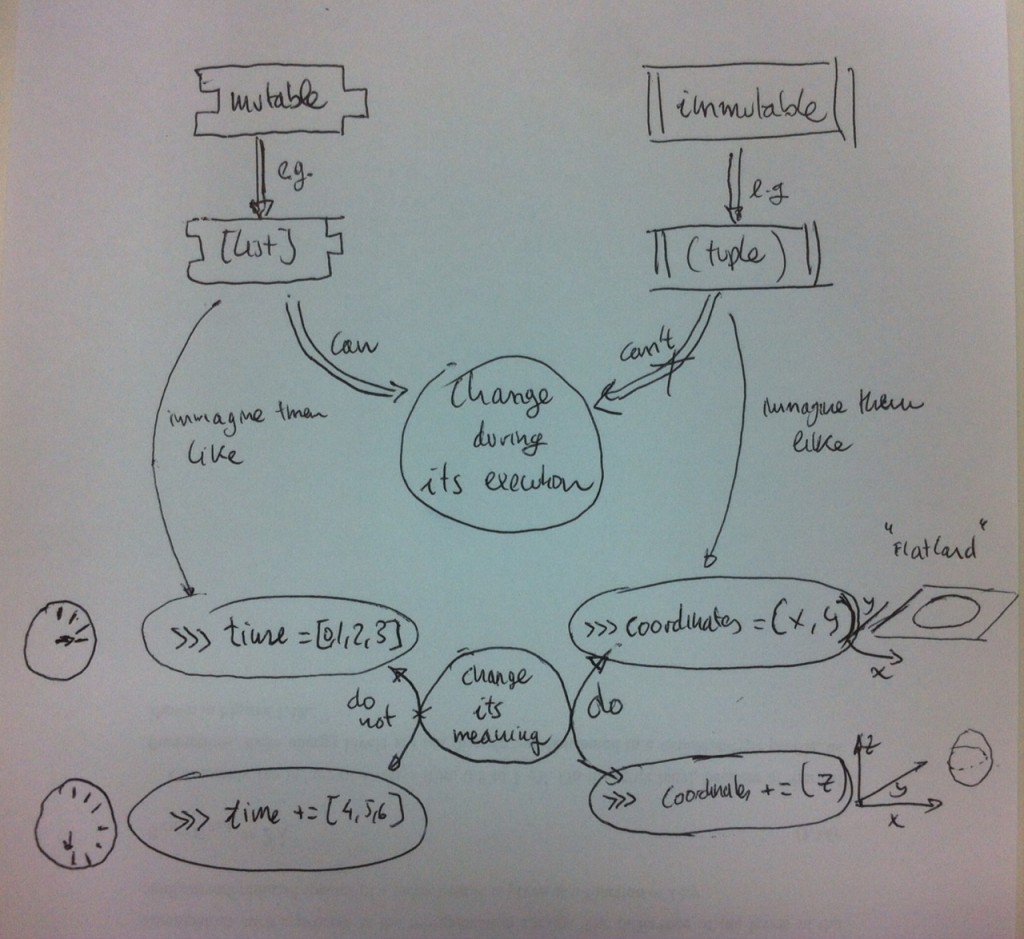 mutable
immutable
e.g.
e.g
[list]
(tuple)
can
can't
Change
during
its execution
immagine them
like
immagine them
like
"Flatland"
>>> time = [0,1,2,3]
>>> coordinates = (x, y)
y
x
change
its
meaning
do
not
do
>>> time += [4,5,6]
>>> coordinates += (z)
z
y
x